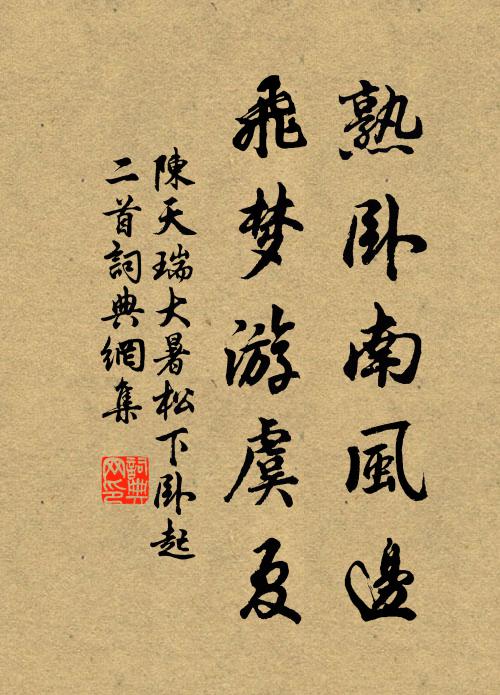 熟卧南風邊
飛梦游虞夏
陳天瑞大暑松下卧起
二首詞典網集
詞典网印